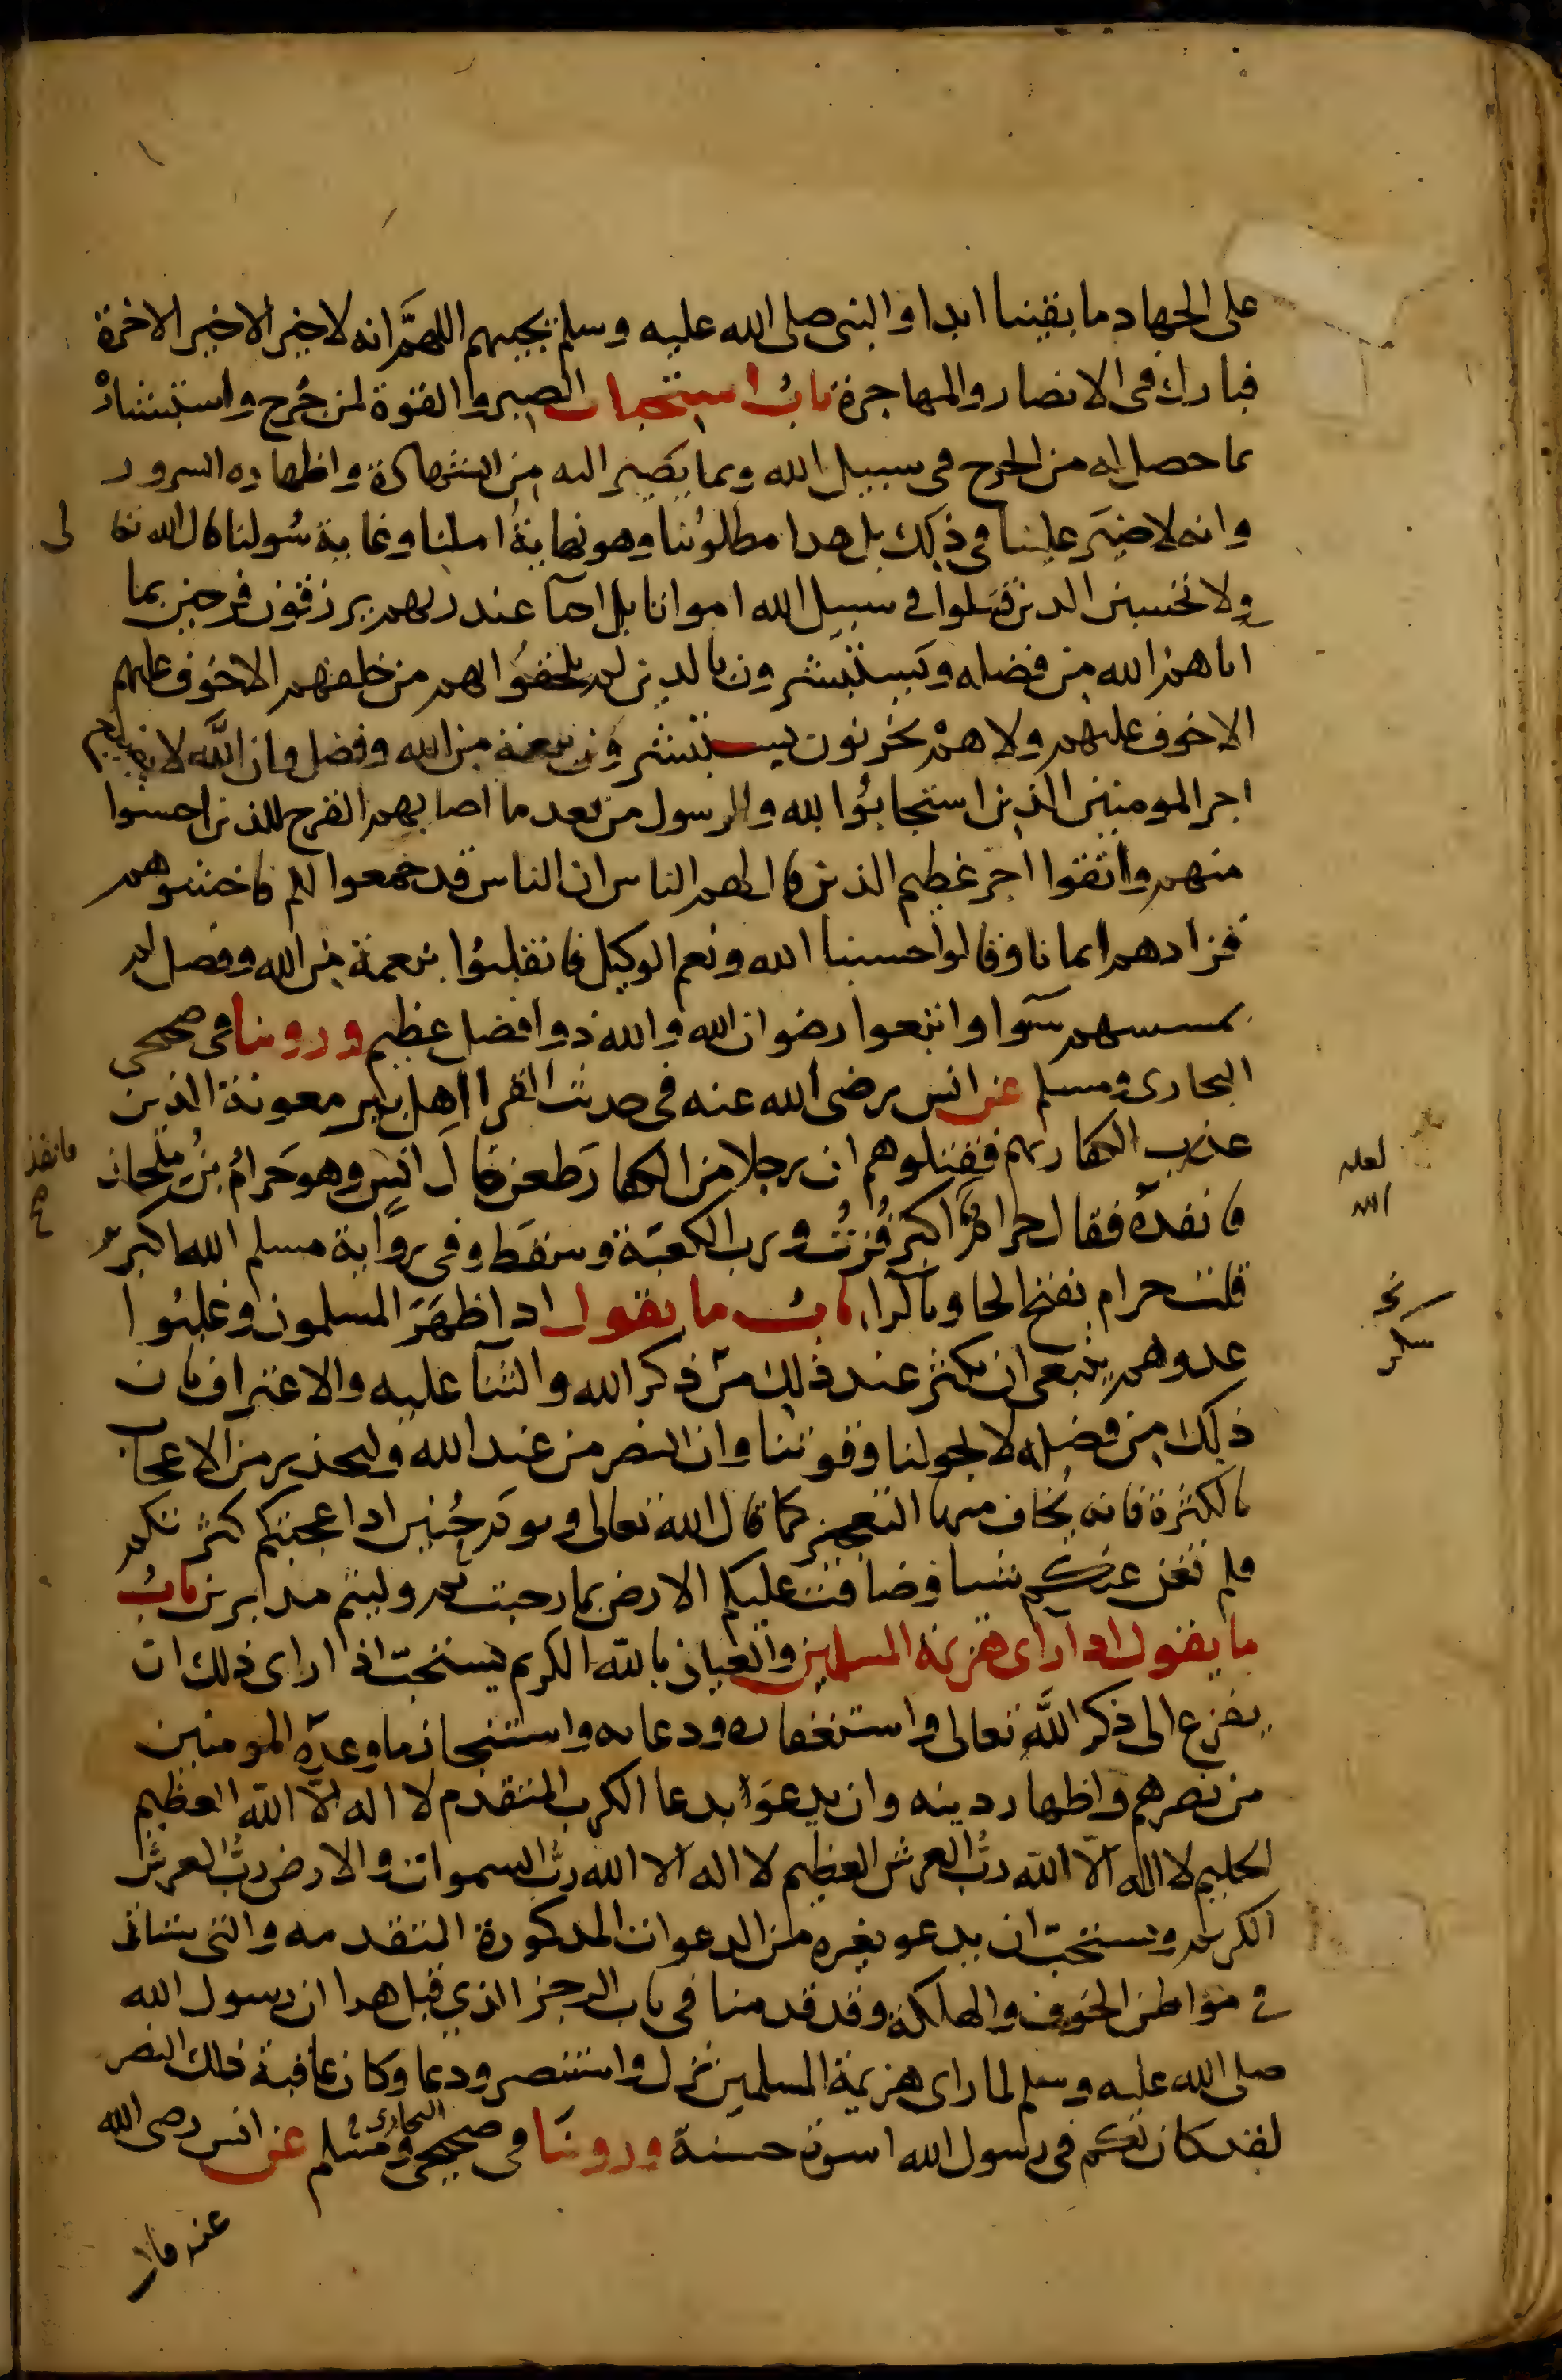 على الجهاد ما بقينا ابدا والنبي صلى الله عليه وسلم يجيبهم اللهم انه لا خير الا خير الاخرة
فبارك في الانصار والمهاجرة باب استحباب الصبر والقوة لمن جرح واستبشاره
بما حصل له من الجرح في سبيل الله وبما يصير اليه من الشهادة واظهاره السرور
وانه لا ضير علينا في ذلك بل هدا مطلوبنا وهو نهاية املنا وغاية سولنا قال الله تعا لى
ولا تحسبن الدين قتلوا في سبيل الله امواتا بل احيآ عند ربهم يرزقون فرحين بما
اتاهم الله من فضله ويستبشرون بالدين لم يلحقوا بهم من خلفهم الا خوف عليهم
الا خوف عليهم ولا هم يحزنون يستبشرون بنعمة من الله وفضل وان الله لا يضيع
اجر المومنين الذين استجابوا لله والرسول من بعد ما اصابهم القرح للذين احسنوا
منهم واتقوا اجر عظيم الذين قال لهم الناس ان الناس قد جمعوا لكم فاخشوهم
فزادهم ايمانا وقالوا حسبنا الله ونعم الوكيل فانقلبوا بنعمة من الله وفضل لم
يمسسهم سوآ واتبعوا رضوان الله والله ذوا فضل عظيم وروينا في صحيحي
البخاري ومسلم عن انس رضي الله عنه في حديث القرا اهل بير معونة الذين
غدرت الكفار بهم فقتلوهم ان رجلا من الكفار طعن خال انس وهو حرام بن ملحان
فانفده فقال حرام اكبر فزت ورب الكعبة وسقط وفي رواية مسلم الله اكبر
قلت حرام بفتح الحا وبالرا باب ما يقول ادا ظهر المسلمون وغلبوا
عدوهم ينبغي ان يكثر عند ذلك من ذكر الله والثنآ عليه والاعتراف بان
ذلك من فضله لا بحولنا وقوتنا وان النصر من عند الله وليحذر من الاعجاب
بالكثرة فانه يخاف منها التعجيز كما قال الله تعالى ويوم حنين ادا عجبتكم كثرتكم
فلم تغن عنكم شيا وضاقت عليكم الارض بما رحبت ثم وليتم مدبرين باب
ما يقول ادا راى هزيمة المسلمين والعياذ بالله الكريم يستحب اذا راى ذلك ان
يفزع الى ذكر الله تعالى واستغفاره ودعايه واستنجاز ما وعده المومنين
من نصرهم واظهار دينه وان يدعوا بدعا الكرب المتقدم لا اله الا الله العظيم
الحليم لا اله الا الله رب العرش العظيم لا اله الا الله رب السموات والارض رب العرش
الكريم ويستحب ان يدعو بغيره من الدعوات المدكورة المتقدمه والتي ستاتي
في مواطن الخوف والهلكة وقد قدمنا في باب الرجز الذي قبل هدا ان رسول الله
صلى الله عليه وسلم لما راى هزيمة المسلمين نزل واستنصر ودعا وكان عاقبة ذلك النصر
لقد كان لكم في رسول الله اسوة حسنة وروينا في صحيحي البخاري ومسلم عن انس رضي الله
عنه قال
فانفذ
لعله
الله